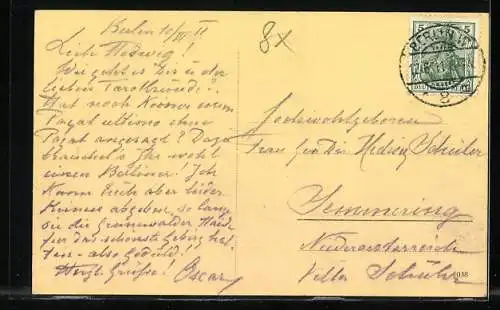 Berlin 10/VI 11
Liebe Hedwig!
Wie geht es bis in der
lieben Tarokrunde?
Hat noch Keiner einen
Pagat ultimo ohne
Pagat angesagt? Dazu
braucht's Ihr wohl
einen Berliner! Ich
kann Euch aber leider
keinen abgeben, so lange
sie die Grunewalder
für das schönste Gebirg hal-
ten - also Geduld.
Herzl. Grüße! Oscar
8x
5 5
BERLIN
8
Hochwohlgeboren
Frau Hedwig Schüler
Semmering
Niederoesterreich
Villa Schüler
038